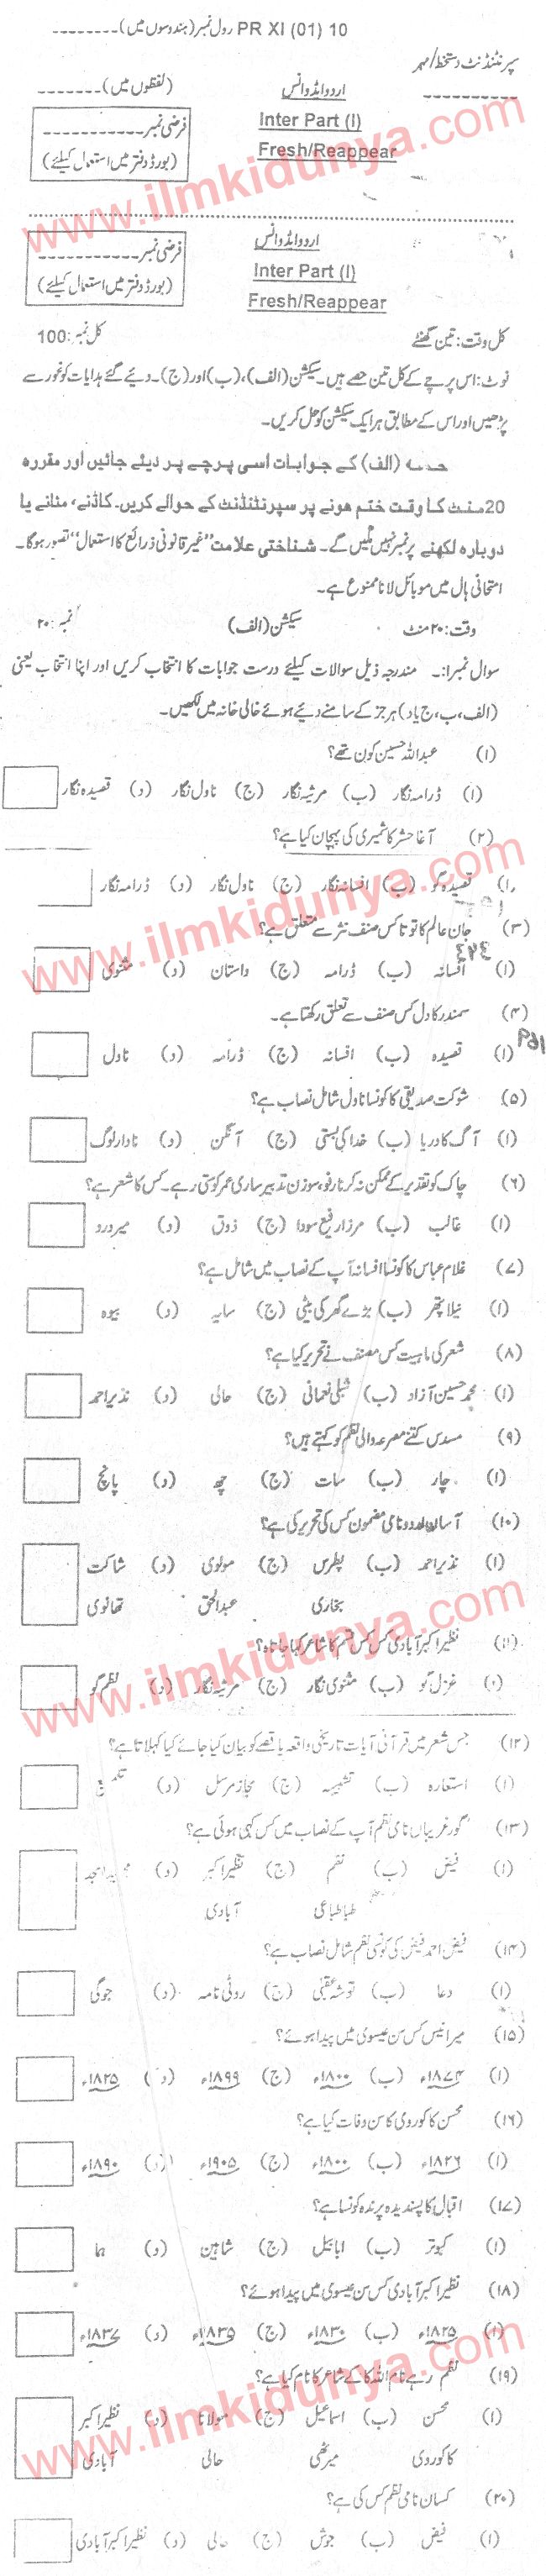 PR XI (01) 10 رول نمبر (ہندسوں میں)
سپرنٹنڈنٹ دستخط/مہر
اردو ایڈوانس (لفظوں میں)
Inter Part (I)
Fresh/Reappear
فرضی نمبر
(بورڈ دفتر میں استعمال کیلئے)
اردو ایڈوانس
Inter Part (I)
Fresh/Reappear
فرضی نمبر
(بورڈ دفتر میں استعمال کیلئے)
کل وقت: تین گھنٹے کل نمبر: 100
نوٹ: اس پرچے کے کل تین حصے ہیں۔ سیکشن (الف)، (ب) اور (ج)۔ دئیے گئے ہدایات کو غور سے
پڑھیں اور اس کے مطابق ہر ایک سیکشن کو حل کریں۔
حصہ (الف) کے جوابات اسی پرچے پر دیئے جائیں اور مقررہ
20 منٹ کا وقت ختم ہونے پر سپرنٹنڈنٹ کے حوالے کریں۔ کاٹنے، مٹانے یا
دوبارہ لکھنے پر نمبر نہیں ملیں گے۔ شناختی علامت "غیر قانونی ذرائع کا استعمال" تصور ہوگا۔
امتحانی ہال میں موبائل لانا ممنوع ہے۔
وقت: ۲۰ منٹ سیکشن (الف) نمبر: ۲۰
سوال نمبر۱:۔ مندرجہ ذیل سوالات کیلئے درست جوابات کا انتخاب کریں اور اپنا انتخاب یعنی
(الف، ب، ج یا د) ہر جز کے سامنے دئیے ہوئے خالی خانہ میں لکھیں۔
(۱) عبداللہ حسین کون تھے؟
(ا) ڈرامہ نگار (ب) مرثیہ نگار (ج) ناول نگار (د) قصیدہ نگار
(۲) آغا حشر کاشمیری کی پہچان کیا ہے؟
(ا) قصیدہ گو (ب) افسانہ نگار (ج) ناول نگار (د) ڈرامہ نگار
(۳) جان عالم کا توتا کس صنف نثر سے متعلق ہے؟
(ا) افسانہ (ب) ڈرامہ (ج) داستان (د) مثنوی
(۴) سمندر کا دل کس صنف سے تعلق رکھتا ہے۔
(ا) قصیدہ (ب) افسانہ (ج) ڈرامہ (د) ناول
(۵) شوکت صدیقی کا کونسا ناول شامل نصاب ہے؟
(ا) آگ کا دریا (ب) خدا کی بستی (ج) آنگن (د) نادار لوگ
(۶) چاک کو تقدیر کے ممکن نہ کرنا رفو، سوزن تدبیر ساری عمر گو سیتی رہے۔ کس کا شعر ہے؟
(ا) غالب (ب) مرزا رفیع سودا (ج) ذوق (د) میر درد
(۷) غلام عباس کا کونسا افسانہ آپ کے نصاب میں شامل ہے؟
(ا) نیلا پتھر (ب) بڑے گھر کی بیٹی (ج) سایہ (د) بیوہ
(۸) شعر کی ماہیت کس مصنف نے تحریر کیا ہے؟
(ا) محمد حسین آزاد (ب) شبلی نعمانی (ج) حالی (د) نذیر احمد
(۹) مسدس کتنے مصرعہ والی نظم کو کہتے ہیں؟
(ا) چار (ب) سات (ج) چھ (د) پانچ
(۱۰) آسان اردو نامی مضمون کس کی تحریر کی ہے؟
(ا) نذیر احمد (ب) پطرس (ج) مولوی (د) شاکت
بخاری عبدالحق تھانوی
(۱۱) نظیر اکبر آبادی کس قسم کا شاعر کہا جاتا ہ؟
(ا) غزل گو (ب) مثنوی نگار (ج) مرثیہ نگار (د) نظم گو
(۱۲) جس شعر میں قرآنی آیات تاریخی واقعہ یا قصے کو بیان کیا جائے کیا کہلاتا ہے؟
(ا) استعارہ (ب) تشبیہہ (ج) مجاز مرسل (د)
(۱۳) گور غریباں نامی نظم آپ کے نصاب میں کس کی کہی ہوئی ہے؟
(ا) فیض (ب) نظم (ج) نظیر اکبر (د) امجد
طباطبائی آبادی
(۱۴) فیض احمد فیض کی کونسی نظم شامل نصاب ہے؟
(ا) دعا (ب) توشہ عقبیٰ (ج) روٹی نامہ (د) جوگی
(۱۵) میر انیس کس سن عیسوی میں پیدا ہوئے؟
(ا) ۱۸۷۴ء (ب) ۱۸۰۰ء (ج) ۱۸۹۹ء (د) ۱۸۲۵ء
(۱۶) محسن کاکوروی کا سن وفات کیا ہے؟
(ا) ۱۸۲۶ء (ب) ۱۸۰۰ء (ج) ۱۹۰۵ء (د) ۱۸۹۰ء
(۱۷) اقبال کا پسندیدہ پرندہ کونسا ہے؟
(ا) کبوتر (ب) ابابیل (ج) شاہین (د) ہما
(۱۸) نظیر اکبر آبادی کس سن عیسوی میں پیدا ہوئے؟
(ا) ۱۸۲۵ء (ب) ۱۸۳۰ء (ج) ۱۷۳۵ء (د) ۱۸۳۷ء
(۱۹) نظم رہے نام اللہ کا کے شاعر کا نام کیا ہے؟
(ا) محسن (ب) اسماعیل (ج) مولانا (د) نظیر اکبر
کاکوروی میرٹھی حالی آبادی
(۲۰) کسان نامی نظم کس کی ہے؟
(ا) فیض (ب) جوش (ج) حالی (د) نظیر اکبر آبادی
www.ilmkidunya.com
www.ilmkidunya.com
www.ilmkidunya.com
www.ilmkidunya.com